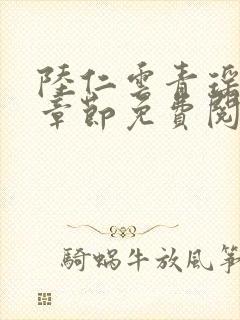 陸仁雲青瑶
章節免費閱
騎蝸牛放風箏